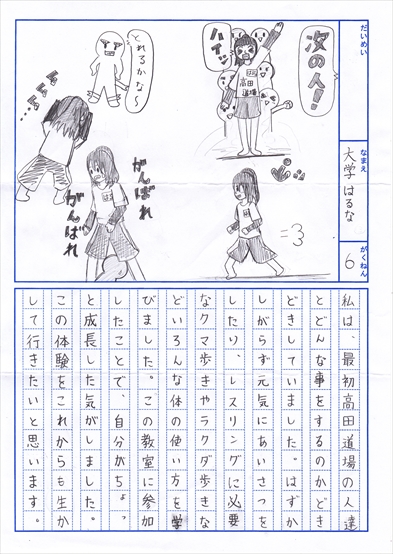 だいめい
なまえ
大学はるな
がくねん
6
次の人!
ハイッ
高田
道場
とれるかな～
がんばれ
がんばれ
私は、最初高田道場の人達
とどんな事をするのかどき
どきしていました。はずか
しがらず元気にあいさつを
したり、レスリングに必要
なクマ歩きやラクダ歩きな
どいろんな体の使い方を学
びました。この教室に参加
したことで、自分がちょっ
と成長した気がしました。
この体験をこれからも生か
して行きたいと思います。